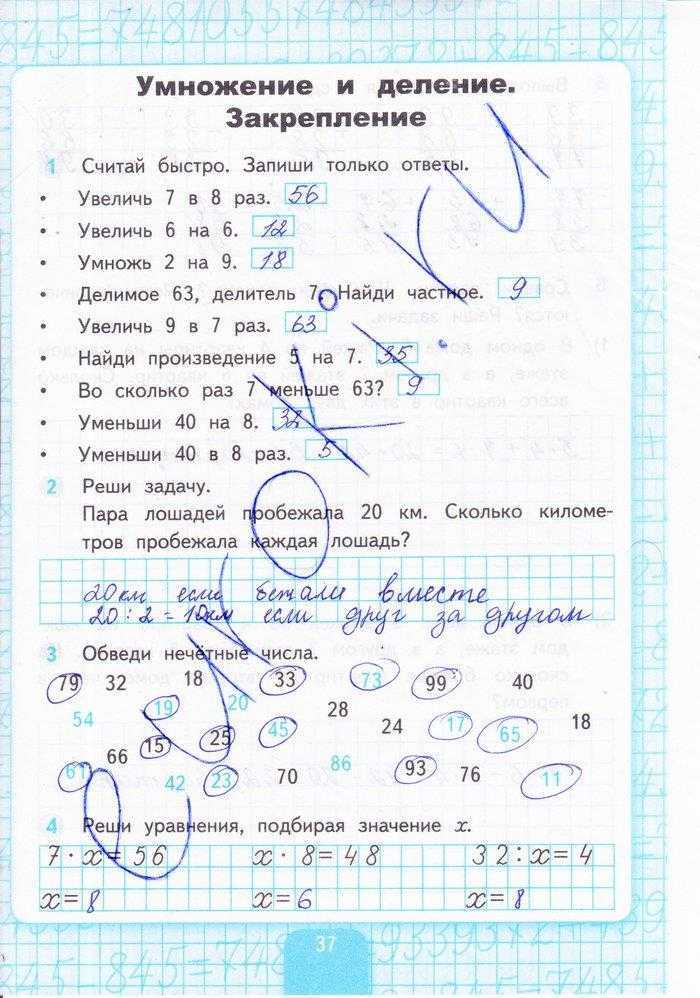 Умножение и деление.
Закрепление
1 Считай быстро. Запиши только ответы.
• Увеличь 7 в 8 раз. 56
• Увеличь 6 на 6. 12
• Умножь 2 на 9. 18
• Делимое 63, делитель 7. Найди частное. 9
• Увеличь 9 в 7 раз. 63
• Найди произведение 5 на 7. 35
• Во сколько раз 7 меньше 63? 9
• Уменьши 40 на 8. 32
• Уменьши 40 в 8 раз. 5
2 Реши задачу.
Пара лошадей пробежала 20 км. Сколько киломе-
тров пробежала каждая лошадь?
20км если бежали вместе
20 : 2 = 10км если друг за другом
3 Обведи нечётные числа.
79 32 18 33 73 99 40
54 19 20 28 17 65 18
15 25 45 24
66 86 93
61 42 23 70 76 11
4 Реши уравнения, подбирая значение x.
7 · x = 56 x · 8 = 48 32 : x = 4
x = 8 x = 6 x = 8
37